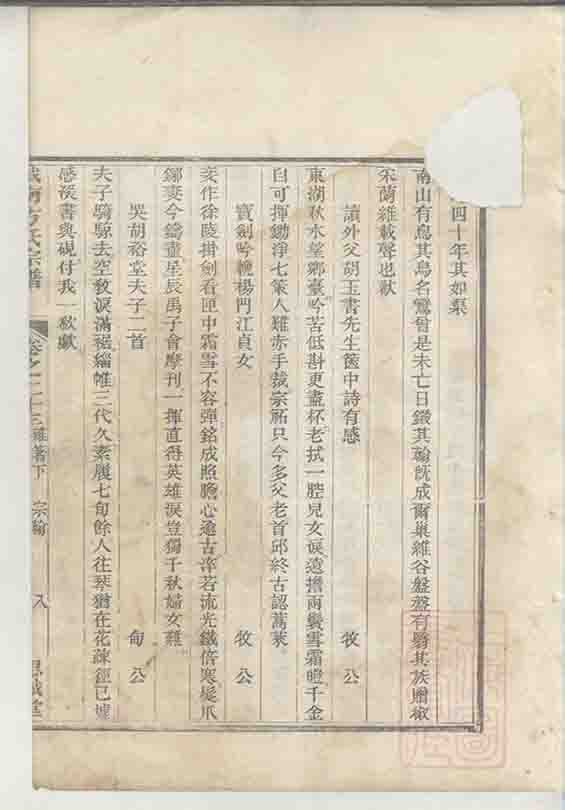 四十年其如梨
南山有鳥其鳥名鸞曾是未亡日鎩其翰旣成爾巢維谷盤盤有翳其族贈椒
宋蘭維載聲也猷
讀外父胡玉書先生篋中詩有感 牧公
東湖秋水望鄉臺吟苦低斟更盡杯老拭一腔兒女淚遠擔兩鬢雪霜瞪千金
自可揮鋤淨七策人難赤手裁宗祏只今多父老首邱終古認蒿萊
寶劍吟輓楊門江貞女 牧公
妾作徐陵掛劍看匣中霜雪不容彈銘成照膽心逾古淬若流光鐵倍寒髮爪
鄉妻今鑄盡星辰禹子會摩刊一揮直得英雄淚豈獨千秋婦女難
哭胡裕堂夫子二首 甸公
夫子騎驂去空敎淚滿裾緇帷三代久素履七旬餘人往琴猶在花疎徑已墟
感深書與硯付我一欷歔
方氏宗譜 卷之二十三 雜著下 宗翰 八